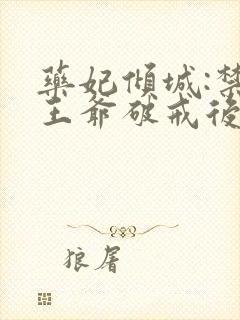 藥妃傾城:禁
王爺破戒後
狼屠